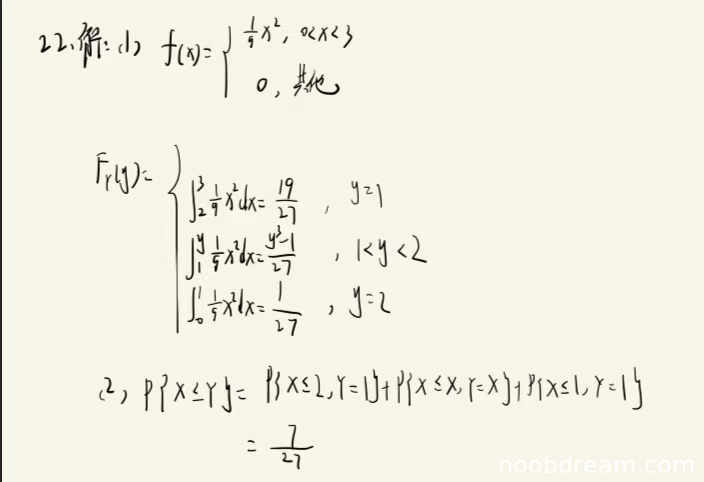 22.解:(1) f(x)={ 1/9 x², 0<x<3
0, 其他
F_Y(y)={ ∫₂³ 1/9 x²dx=19/27, y=1
∫₁ʸ 1/9 x²dx=y³-1/27, 1<y<2
∫₀¹ 1/9 x²dx=1/27, y=2
(2) P{X≤Y}=P{X≤2,Y=1}+P{X≤X,Y=X}+P{X≤1,Y=1}
=7/27
noobdream.com